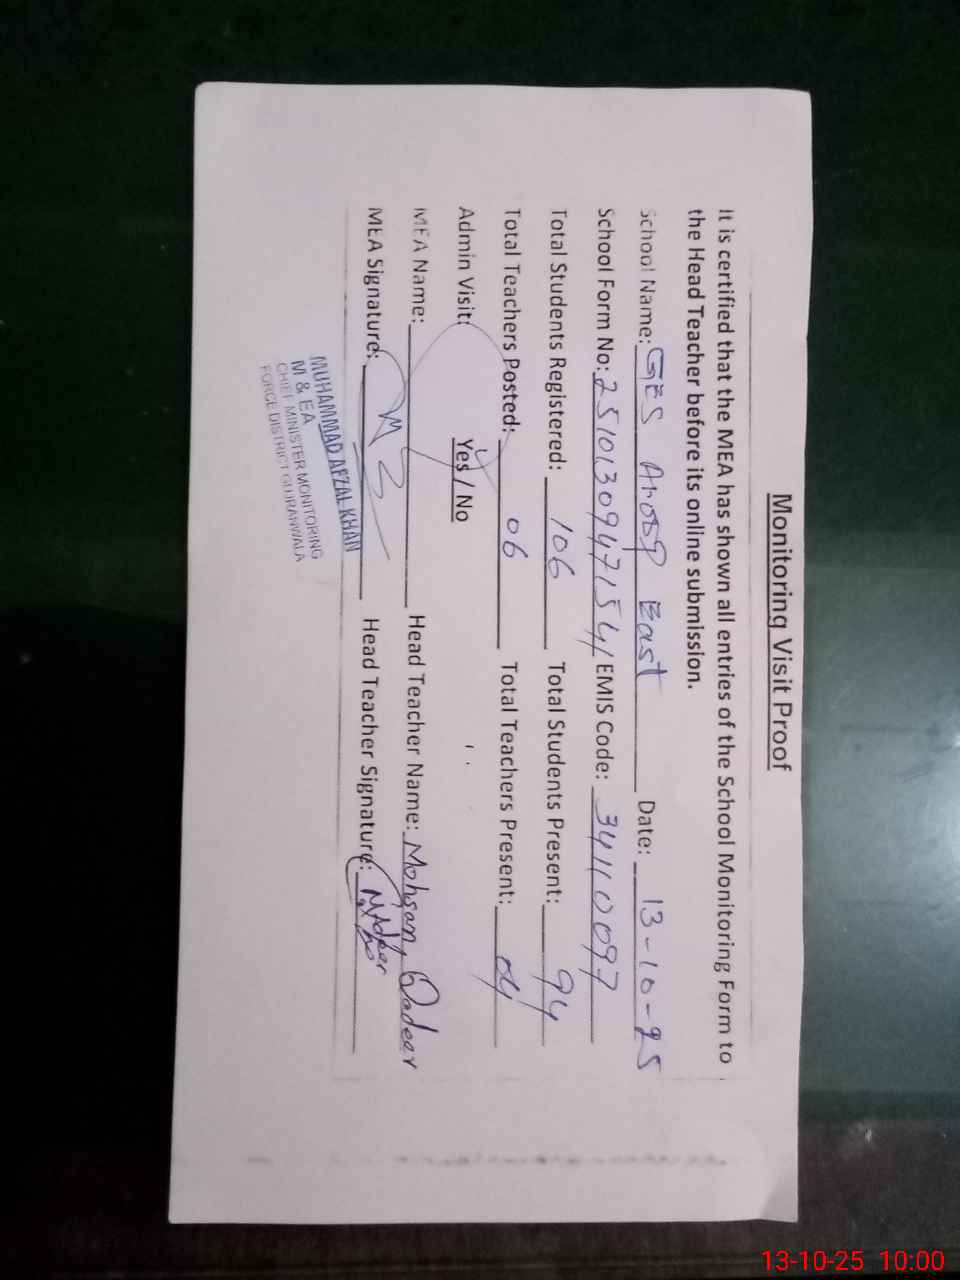 Monitoring Visit Proof
It is certified that the MEA has shown all entries of the School Monitoring Form to
the Head Teacher before its online submission.
School Name: GES Aroop East Date: 13-10-25
School Form No: 25101309471541 EMIS Code: 34110097
Total Students Registered: 106 Total Students Present: 94
Total Teachers Posted: 06 Total Teachers Present: 04
Admin Visit: Yes / No
MEA Name: Head Teacher Name: Mohsan Qadeer
MEA Signature: Head Teacher Signature: MQadeer
MUHAMMAD AFZAL KHAN
M & EA
CHIEF MINISTER MONITORING
FORCE DISTRICT GUJRANWALA
13-10-25 10:00